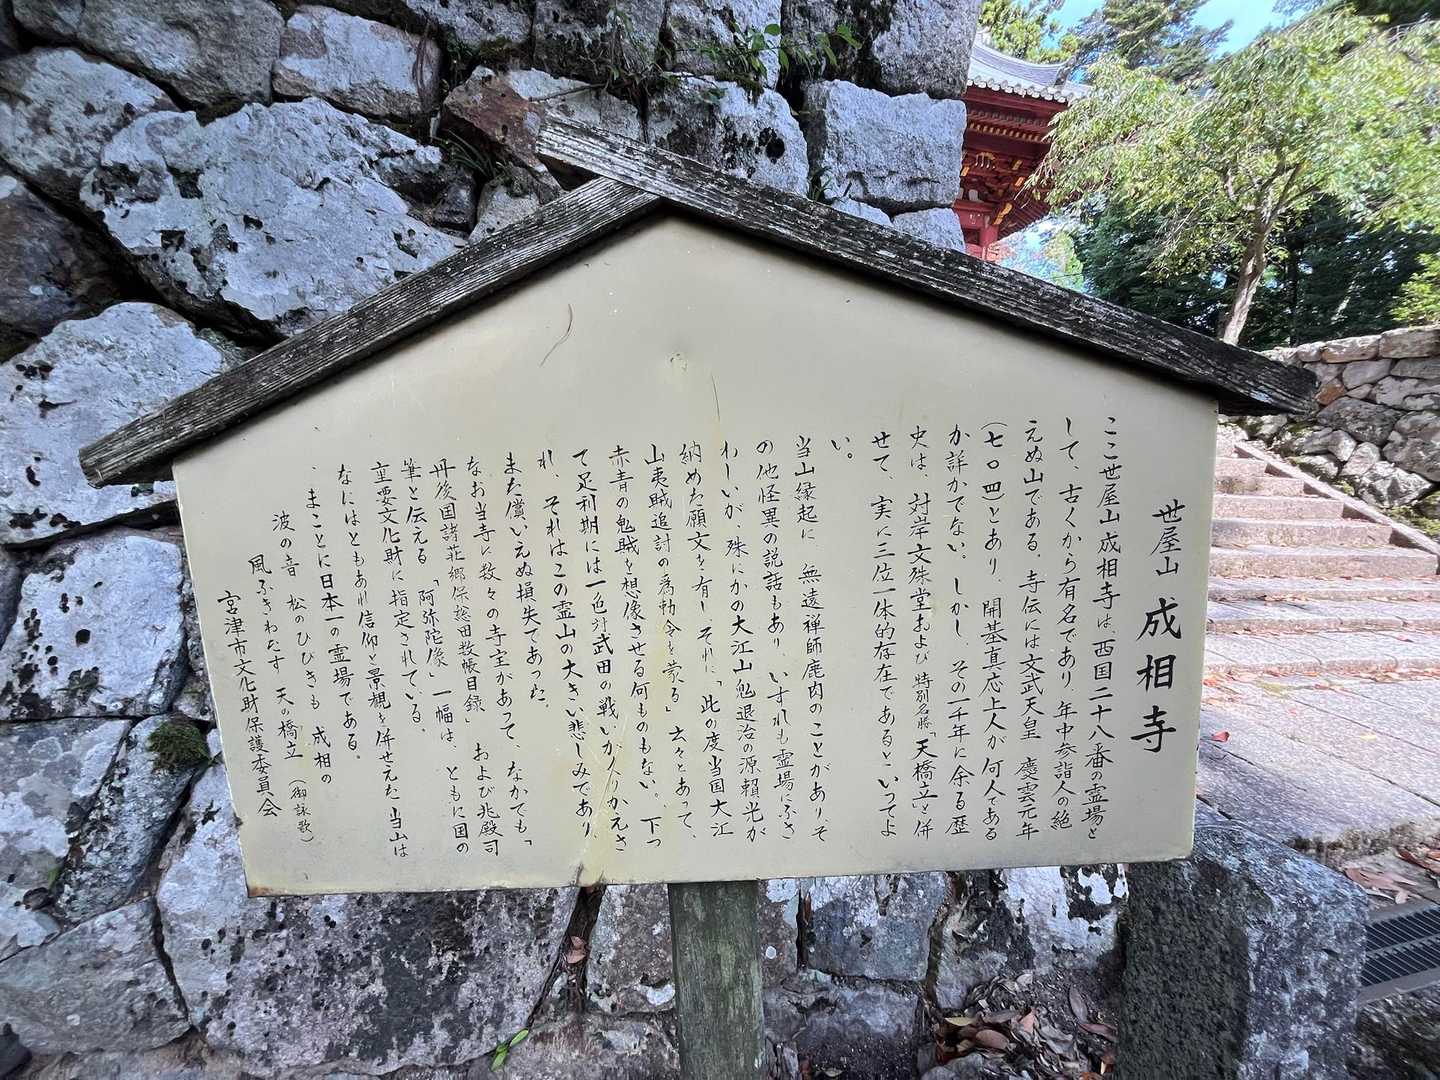 世屋山 成相寺
ここ世屋山成相寺は、西国二十八番の霊場と
して、古くから有名であり、年中参詣人の絶
えぬ山である。寺伝には文武天皇 慶雲元年
(七〇四)とあり、開基真応上人が何人である
か詳かでない。しかし その一千年に余る歴
史は、対岸文殊堂および特別名勝「天橋立」と併
せて、実に三位一体的存在であるといってよ
い。
当山縁起に、無遠禅師鹿肉のことがありそ
の他怪異の説話もあり、いずれも霊場にふさ
わしいが、殊にかの大江山鬼退治の源頼光が
納めた願文を有し、それに「此の度当国大江
山夷賊追討の為勅令を蒙る」云々とあって、
赤青の鬼賊を想像させる何ものもない。下っ
て足利期には一色対武田の戦いがくりかえさ
れ、それはこの霊山の大きい悲しみであり、
また償いえぬ損失であった。
なお当寺に数々の寺宝があって、なかでも「
丹後国諸荘郷保惣田数帳目録」 および兆殿司
筆と伝える 「阿弥陀像」 一幅は、ともに国の
重要文化財に指定されている。
なにはともあれ信仰と景観を併せえた当山は
、まことに日本一の霊場である。
波の音 松のひびきも 成相の
風ふきわたす 天の橋立 (御詠歌)
宮津市文化財保護委員会